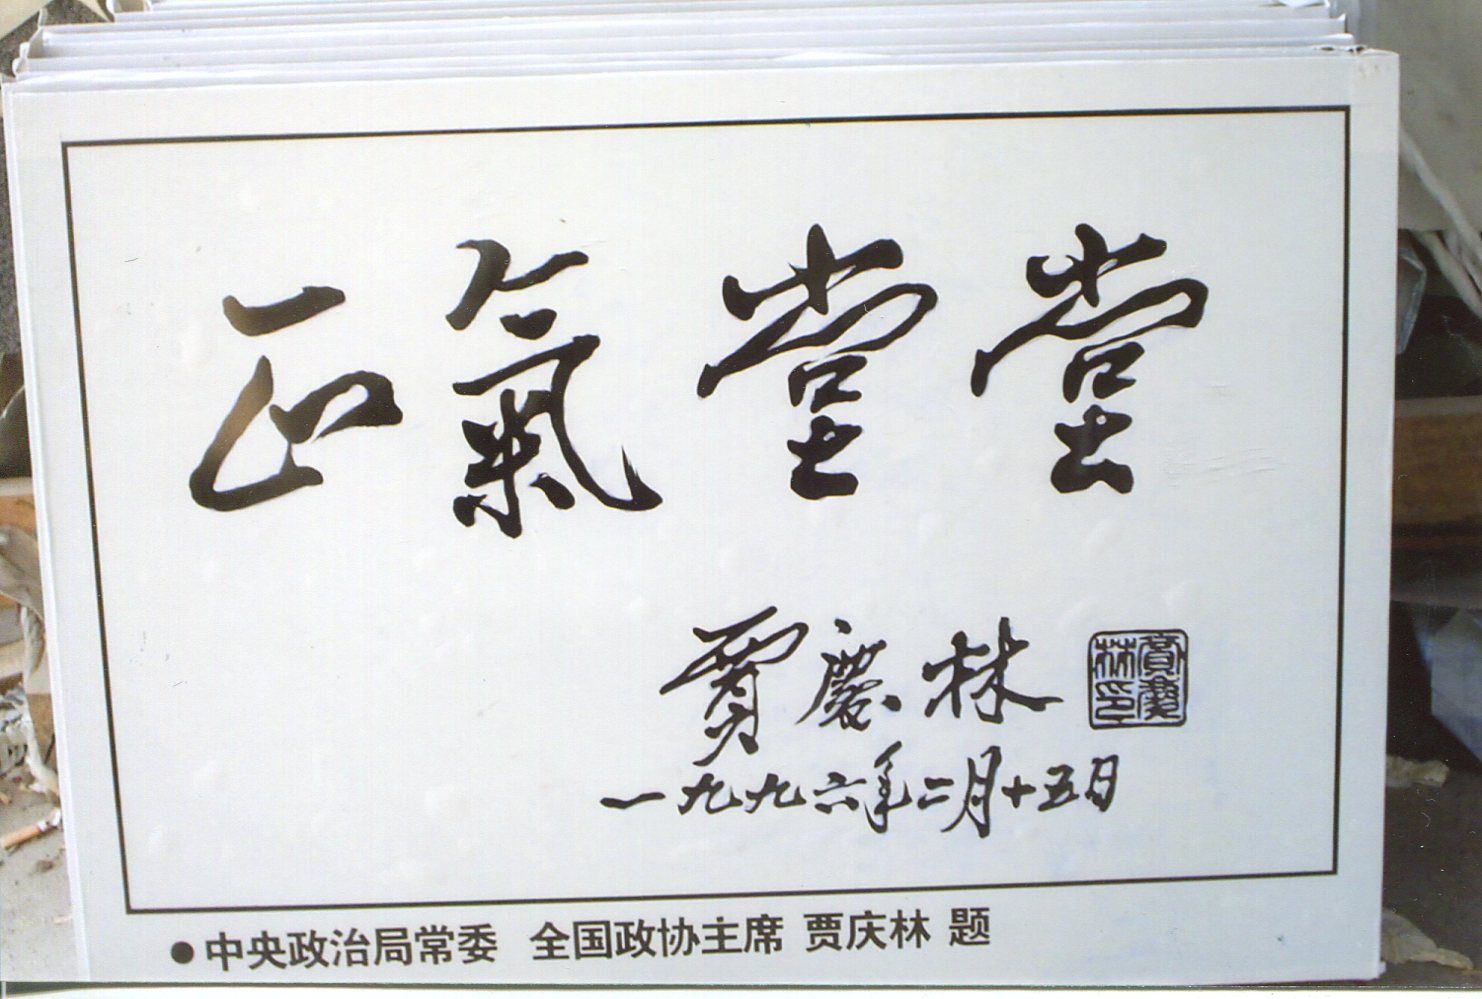 正氣堂堂
賈慶林
賈慶林印
一九九六年二月十五日
●中央政治局常委 全国政协主席 贾庆林 题